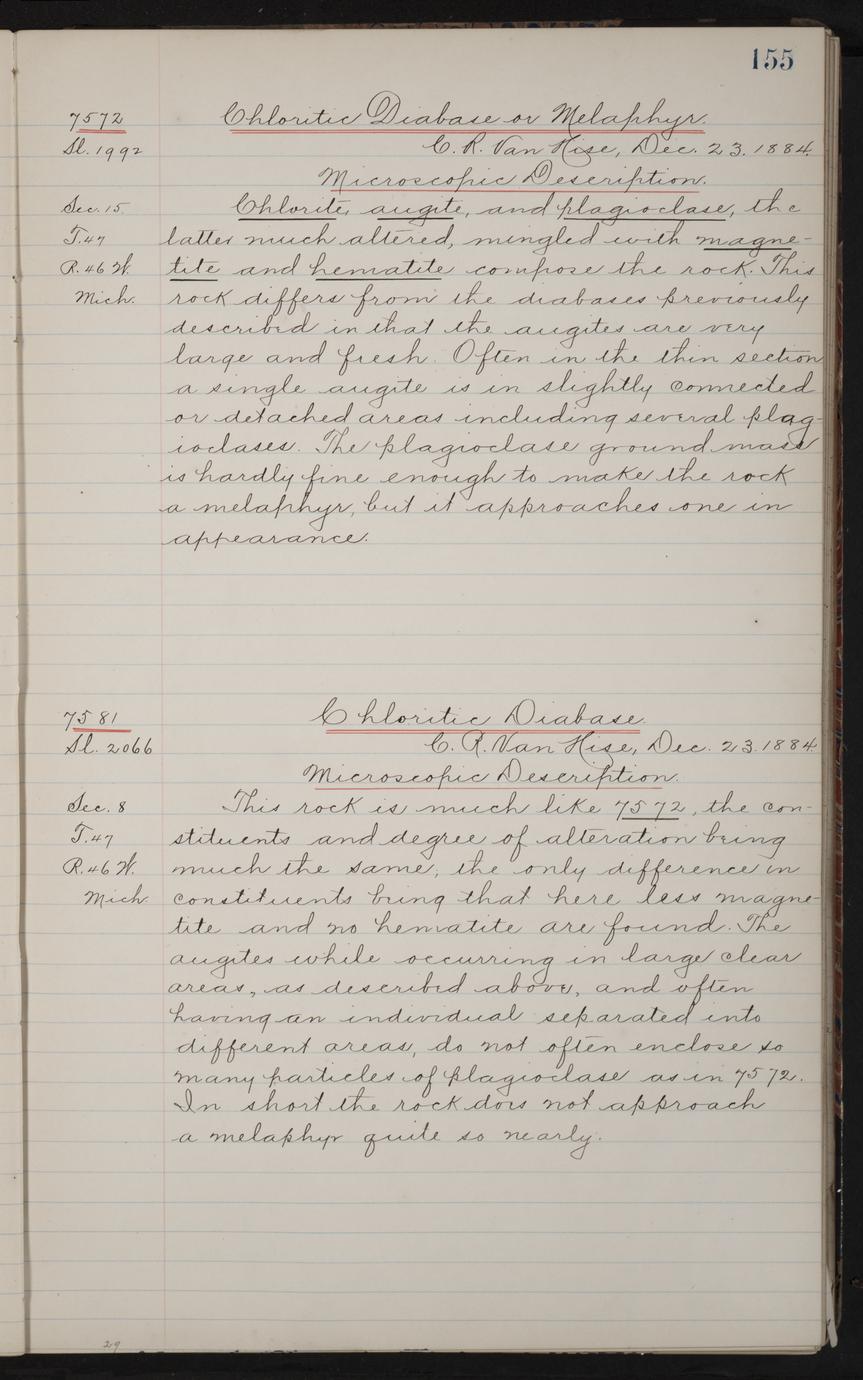 155
7572 Chloritic Diabase or Melaphyr.
Sl. 1992 C. R. Van Hise, Dec. 23. 1884.
Microscopic Description.
Sec. 15. Chlorite, augite, and plagioclase, the
T. 47 latter much altered, mingled with magne-
R. 46 W. tite and hematite compose the rock. This
Mich. rock differs from the diabases previously
described in that the augites are very
large and fresh. Often in the thin section
a single augite is in slightly connected
or detached areas including several plag-
ioclases. The plagioclase ground mass
is hardly fine enough to make the rock
a melaphyr, but it approaches one in
appearance.
7581 Chloritic Diabase.
Sl. 2066 C. R. Van Hise, Dec. 23. 1884.
Microscopic Description.
Sec. 8 This rock is much like 7572, the con-
T. 47 stituents and degree of alteration being
R. 46 W. much the same, the only difference in
Mich. constituents being that here less magne-
tite and no hematite are found. The
augites while occurring in large clear
areas, as described above, and often
having an individual separated into
different areas, do not often enclose so
many particles of plagioclase as in 7572.
In short the rock does not approach
a melaphyr quite so nearly.
29